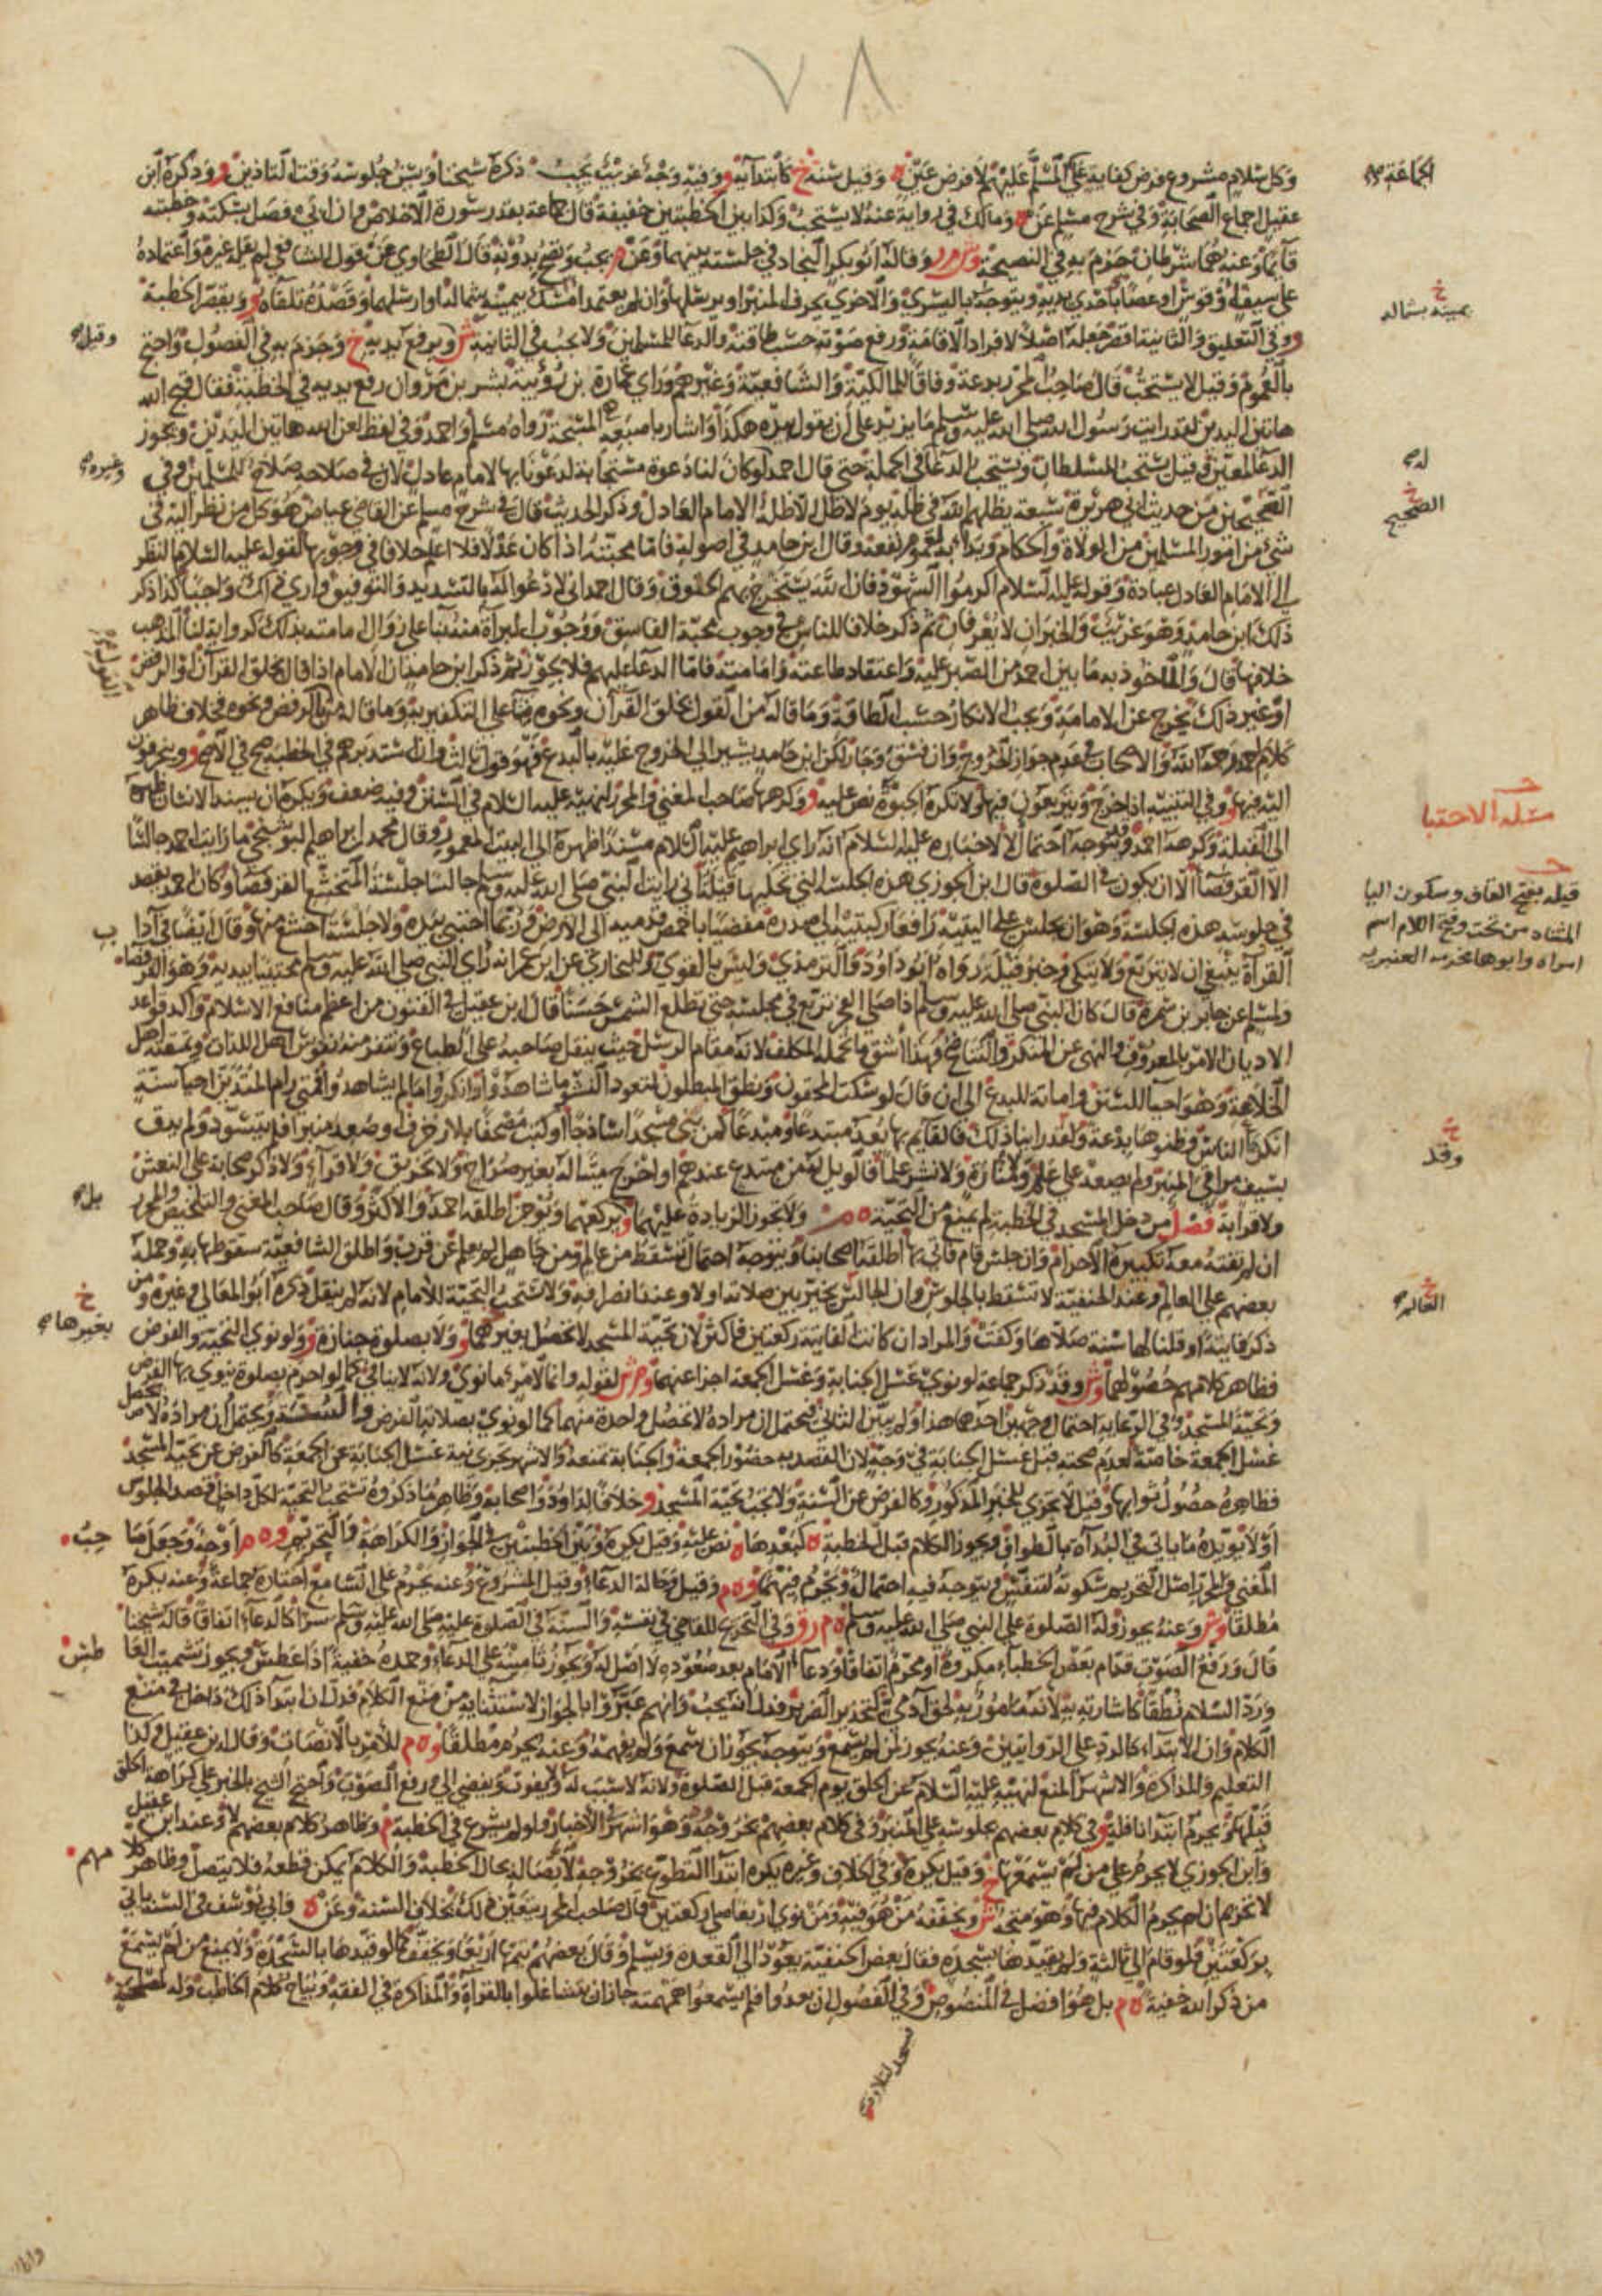 ٧٨
وكل سلام مشروع فرض كفاية على المسلم عليهم لا فرض عين ه وقيل سنة خ كابتدائه و وفيه وجه غريب يجب ذكره شيخنا وسن جلوسه وقت التاذين و وذكره ابن
الجماعة صح
عقيل اجماع الصحابة وفي شرح مسلم عن ه ومالك في رواية عنه لا يستحب وكذا بين الخطبتين خفيفة قال جماعة بقدر سورة الاخلاص فان ابى فصل بسكتة وخطبته
قائما وعنه هما شرطان جزم به في النصيحة وش م ر وقاله ابو بكر النجاد في جلسته بينهما وعن م يجب وتصح بدونه قال الطحاوي عن قول الشافعي لم يقله غيره واعتماده
على سيف او قوس او عصا باحدى يديه ويتوجه باليسرى والاخرى بحرف المنبر او يرسلها وان لم يعتمد امسك يمينه بشماله او ارسلهما وقصده تلقاءه و ويقصر الخطبة
خ
يمينه بشماله
و وفي التعليق والثانية اقصر جعله اصلا لافراد الاقامة ورفع صوته حسب طاقته والدعاء للمسلمين ولا يجب في الثانية ش ويرفع يديه خ وجزم به في الفصول واحتج
وقيل صح
بالعموم وقيل لا يستحب قال صاحب المحرر بدعة وفاقا للمالكية والشافعية وغيرهم وراى عمارة بن رؤيبة بشر بن مروان رفع يديه في الخطبة فقال قبح الله
هاتين اليدين لقد رايت رسول الله صلى الله عليه وسلم ما يزيد على ان يقول بيده هكذا واشار باصبعه المسبحة رواه مسلم واحمد وفي لفظ لعن الله هاتين اليدين ويجوز
الدعاء لمعين وقيل يستحب للسلطان ويستحب الدعاء في الجملة حتى قال احمد لو كان لنا دعوة مستجابة لدعونا بها لامام عادل لان في صلاحه صلاح للمسلمين وفي
له صح
وغيره صح
الصحيحين من حديث ابي هريرة سبعة يظلهم الله في ظله يوم لا ظل الا ظله الامام العادل وذكر الحديث قال في شرح مسلم عن القاضي عياض هو كل من نظر اليه في
خ
الصحيح
شئ من امور المسلمين من الولاة والحكام وبدا به لعموم نفعه وقال ابن حامد في اصوله فاما محبته اذا كان عدلا فلا اعلم خلافا في وجوبها لقوله عليه السلام النظر
الى الامام العادل عبادة وقوله عليه السلام اكرموا الشهود فان الله يستخرج بهم الحقوق وقال احمد اني لا دعو الله له بالتسديد والتوفيق وارى ذلك واجبا كذا ذكر
ذلك ابن حامد وهو غريب والخبران لا يعرفان ثم ذكر خلافا للناس في وجوب محبة الفاسق ووجوب البراءة منه بناء على زوال امامته بذلك كرواية لنا المذهب
خلافها قال والماخوذ به ما بين احمد من الصبر عليه واعتقاد طاعته وامامته فاما الدعاء عليهم فلا يجوز ثم ذكر ابن حامد ان الامام اذا قال بخلق القرآن او الرفض
او غير ذلك يخرج عن الامامة ويجب الانكار حسب الطاقة وما قاله من القول بخلق القرآن ونحوه بناء على التكفير به وما قاله من الرفض ونحوه فخلاف ظاهر
كلام احمد رحمه الله والاصحاب في عدم جواز الخروج وان فسق وجار لكن ابن حامد يشير الى الخروج عليه بالبدع فهو قول ثالث وان استدبرهم في الخطبة صح في الاصح و وينحرفون
اليه فيها و وفي التنبيه اذا خرج ويتربعون فيها ولا تكره الحبوة نص عليه و وكرهها صاحب المغني والمحرر لنهيه عليه السلام في السنن وفيه ضعف ويكره ان يسند الانسان ظهره
مسئلة الاحتبا
الى القبلة وكرهه احمد ويتوجه احتمال لا لاخباره عليه السلام انه راى ابراهيم عليه السلام مسندا ظهره الى البيت المعمور وقال محمد بن ابراهيم البوشنجي ما رايت احمد جالسا
الا القرفصاء الا ان يكون في الصلوة قال ابن الجوزي هذه الجلسة التي تحكيها قيلة اني رايت النبي صلى الله عليه وسلم جالسا جلسة المتخشع القرفصا وكان احمد يقصد
قيله بفتح القاف وسكون اليا
المثناه من تحت وفتح اللام اسم
امراه وابوها مخرمه العنبريه
في جلوسه هذه الجلسة وهو ان يجلس على اليتيه رافعا ركبتيه الى صدره مفضيا باخمص قدميه الى الارض وربما احتبى بيده ولا جلسة اخشع منها وقال ايضا في آداب
القرآة ينبغي ان لا يتربع ولا يتكئ وخبر قيلة رواه ابو داود والترمذي وليس بالقوي وللبخاري عن ابن عمر انه راى النبي صلى الله عليه وسلم محتبيا بيديه وهو القرفصاء
ولمسلم عن جابر بن سمرة قال كان النبي صلى الله عليه وسلم اذا صلى الفجر تربع في مجلسه حتى تطلع الشمس حسنا قال ابن عقيل في الفنون من اعظم منافع الاسلام وآكد قواعد
الاديان الامر بالمعروف والنهي عن المنكر والتناصح وهذا اشق ما تحمله المكلف لانه مقام الرسل حيث يثقل صاحبه على الطباع وتنفر منه نفوس اهل اللذات ويمقته اهل
الخلاعة وهو احياء للسنن واماتة للبدع الى ان قال لو سكت المحقون ونطق المبطلون لتعود النشؤ ما شاهدوا وانكروا ما لم يشاهدوا فمتى رام المتدين احياء سنة
انكرها الناس وظنوها بدعة ولقد راينا ذلك فالقايم بها يعد مبتدعا ومبدعا كمن بنى مسجدا ساذجا او كتب مصحفا بلا زخرف او صعد منبرا فلم يتسود ولم يدق
خ
وقد
بسيف مراقي المنبر ولم يصعد على علم ومنارة ولا نشر علما فالويل له من مبتدع عندهم او اخرج ميتا له بغير صراخ ولا تخريق ولا قرآء ولا ذكر صحابة على النعش
ولا قرابة فصل من دخل المسجد في الخطبة لم يمنع من التحية ه م ولا تجوز الزيادة عليهما و يركعهما ويوجز اطلقه احمد والاكثر وقال صاحب المغني والتلخيص والمحرر
بل صح
ان لم تفته معه تكبيرة الاحرام وان جلس قام فاتى بها اطلقه اصحابنا ويتوجه احتمال تسقط من عالم ومن جاهل لم يعلم عن قرب واطلق الشافعية سقوطها به وحمله
بعضهم على العالم وعند الحنفية لا تسقط بالجلوس وان الجالس يخير بين صلاته اولا وعند انصرافه ولا تستحب التحية للامام لانه لم ينقل ذكره ابو المعالي وغيره ومن
خ
الغاله صح
خ
بغيرها صح
ذكر فايتة او قلنا لها سنة صلاها وكفت والمراد ان كانت الفايتة ركعتين فاكثر لان تحية المسجد لا تحصل بغيرهما و ولا بصلوة جنازة و ولو نوى التحية والفرض
فظاهر كلامهم حصولهما وش وقد ذكر جماعة لو نوى غسل الجنابة وغسل الجمعة اجزا عنهما وم ش لقوله وانما لامرئ ما نوى ولانه لا ينافي كما لو احرم بصلوة ينوي بها الفرض
وتحية المسجد وفي الرعاية احتمال وجهين احدهما هذا ولم يبين الثاني فيحتمل ان مراده لا تحصل واحدة منهما كما لو نوى بصلاته الفرض والسنة ويحتمل ان مراده لا يحصل
غسل الجمعة خاصة لعدم صحته قبل غسل الجنابة في وجه لان القصد به حضور الجمعة والجنابة تمنعه والاشهر تجزئ نية غسل الجنابة عن الجمعة كالفرض عن تحية المسجد
فظاهره حصول ثوابها وقيل لا تجزي للخبر المذكور وكالفرض عن السنة ولا تجب تحية المسجد و خلافا لداود واصحابه وظاهر ما ذكروه تستحب التحية لكل داخل قصد الجلوس
او لا يؤيده ما ياتي في البدآة بالطواف ويجوز الكلام قبل الخطبة ه كبعدها ه نص عليه وقيل يكره وبين الخطبتين في الجواز والكراهة والتحريم و ه م اوجه وجعل صاحب
المغني والمحرر اصل التحريم سكوته لتنفس فيتوجه فيه احتمال ويحرم فيهما و ه م وقيل وحالة الدعاء وقيل المشروع وعنه يحرم على السامع اختاره جماعة وعنه يكره
مطلقا وش وعنه يجوز وله الصلوة على النبي صلى الله عليه وسلم ه م ر ق وفي التخريج للقاضي في نفسه والسنة في الصلوة عليه صلى الله عليه وسلم سرا كالدعاء اتفاقا قاله شيخنا
قال ورفع الصوت قدام بعض الخطباء مكروه او محرم اتفاقا ودعاء الامام بعد صعوده لا اصل له ويجوز تأمينه على الدعاء وحمده خفية اذا عطس ويجوز تشميت العاطس
ورد السلام نطقا كاشارته به لانه مامور به لحق آدمي كتحذير الضرير فدل انه يجب وانهم عبروا بالجواز لاستثنائه من منع الكلام فدل ان ابتداء ذلك داخل في منع
الكلام وان الابتداء كالرد على الروايتين وعنه يجوز لمن لم يسمع ويتوجه يجوز ان سمع ولم يفهمه وعنه يحرم مطلقا و ه م للامر بالانصات وقال ابن عقيل وكذا
التعليم والمذاكرة والاشهر المنع لنهيه عليه السلام عن الحلق يوم الجمعة قبل الصلوة ولانه لا سبب له ولا يفوت ويفضي الى رفع الصوت واحتج الشيخ بالخبر على كراهة الحلق
قبلها ثم يحرم ابتداء نافلة و وفي كلام بعضهم بجلوسه على المنبر وفي كلام بعضهم بخروجه وهو اشهر في الاخبار ولو لم يشرع في الخطبة م وظاهر كلام بعضهم لا وعند ابن عقيل
وابن الجوزي لا يحرم على من لم يسمعها خ وقيل يكره وفي الخلاف وغيره يكره ابتداء التطوع بخروجه لاتصاله بحال الخطبة والكلام يمكن قطعه فلا يتصل وظاهر كلامهم
لا تحريم ان لم يحرم الكلام فيها وهو متجه ش ويخففه من هو فيه ومن نوى اربعا صلى ركعتين قال صاحب المحرر يتعين ذلك بخلاف السنة وعن ه وابي يوسف في السنة ياتي
بركعتين فلو قام الى ثالثة ولم يقيدها بسجدة فقال بعض الحنفية يعود الى القعدة ويسلم وقال بعضهم يتمها اربعا ويخففها كما لو قيدها بالسجدة ولا يمنع من لم يسمع
من ذكر الله خفية ه م بل هو افضل في المنصوص وفي الفصول ان بعدوا فلم يسمعوا همهمته جاز ان يتشاغلوا بالقراة والمذاكرة في الفقه ويباح كلام الخاطب وله لمصلحة